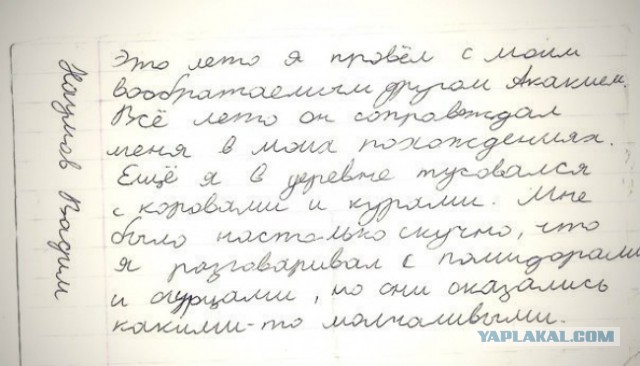 Наумов Вадим
Это лето я провёл с моим
воображаемым другом Акакием.
Всё лето он соправждал
меня в моих похождениях.
Ещё я в деревне тусовался
с коровами и курами. Мне
было настолько скучно, что
я разговаривал с помидорами
и огурцами, но они оказались
какими-то молчаливыми.
YAPLAKAL.COM